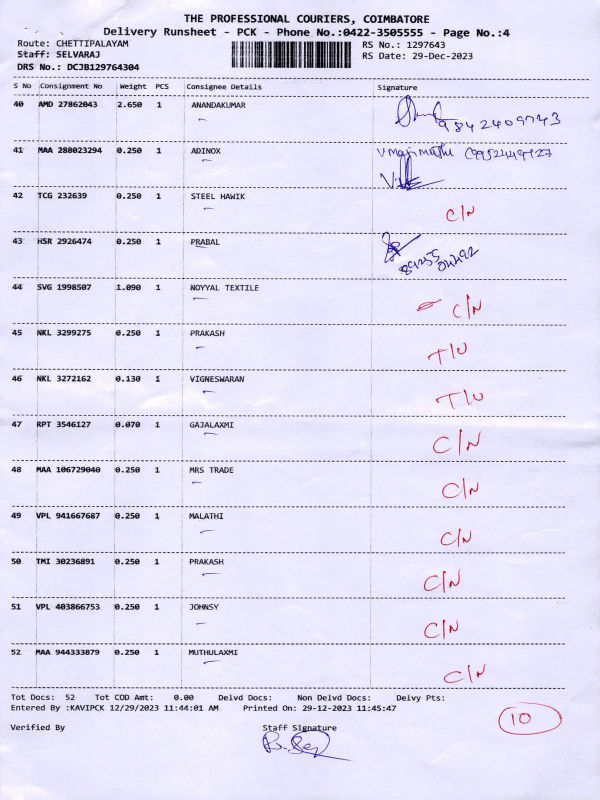 THE PROFESSIONAL COURIERS, COIMBATORE
Delivery Runsheet - PCK - Phone No.:0422-3505555 - Page No.:4
Route: CHETTIPALAYAM RS No.: 1297643
Staff: SELVARAJ RS Date: 29-Dec-2023
DRS No.: DCJB129764304
S No Consignment No Weight PCS Consignee Details Signature
40 AMD 27862043 2.650 1 ANANDAKUMAR 9842409743
41 MAA 288023294 0.250 1 ADINOX
42 TCG 232639 0.250 1 STEEL HAWIK C/N
43 HSR 2926474 0.250 1 PRABAL
44 SVG 1998507 1.090 1 NOYYAL TEXTILE C/N
45 NKL 3299275 0.250 1 PRAKASH T/U
46 NKL 3272162 0.130 1 VIGNESWARAN T/U
47 RPT 3546127 0.070 1 GAJALAXMI C/N
48 MAA 106729040 0.250 1 MRS TRADE C/N
49 VPL 941667687 0.250 1 MALATHI C/N
50 TMI 30236891 0.250 1 PRAKASH C/N
51 VPL 403866753 0.250 1 JOHNSY C/N
52 MAA 944333879 0.250 1 MUTHULAXMI C/N
Tot Docs: 52 Tot COD Amt: 0.00 Delvd Docs: Non Delvd Docs: Delvy Pts:
Entered By :KAVIPCK 12/29/2023 11:44:01 AM Printed On: 29-12-2023 11:45:47
10
Verified By Staff Signature